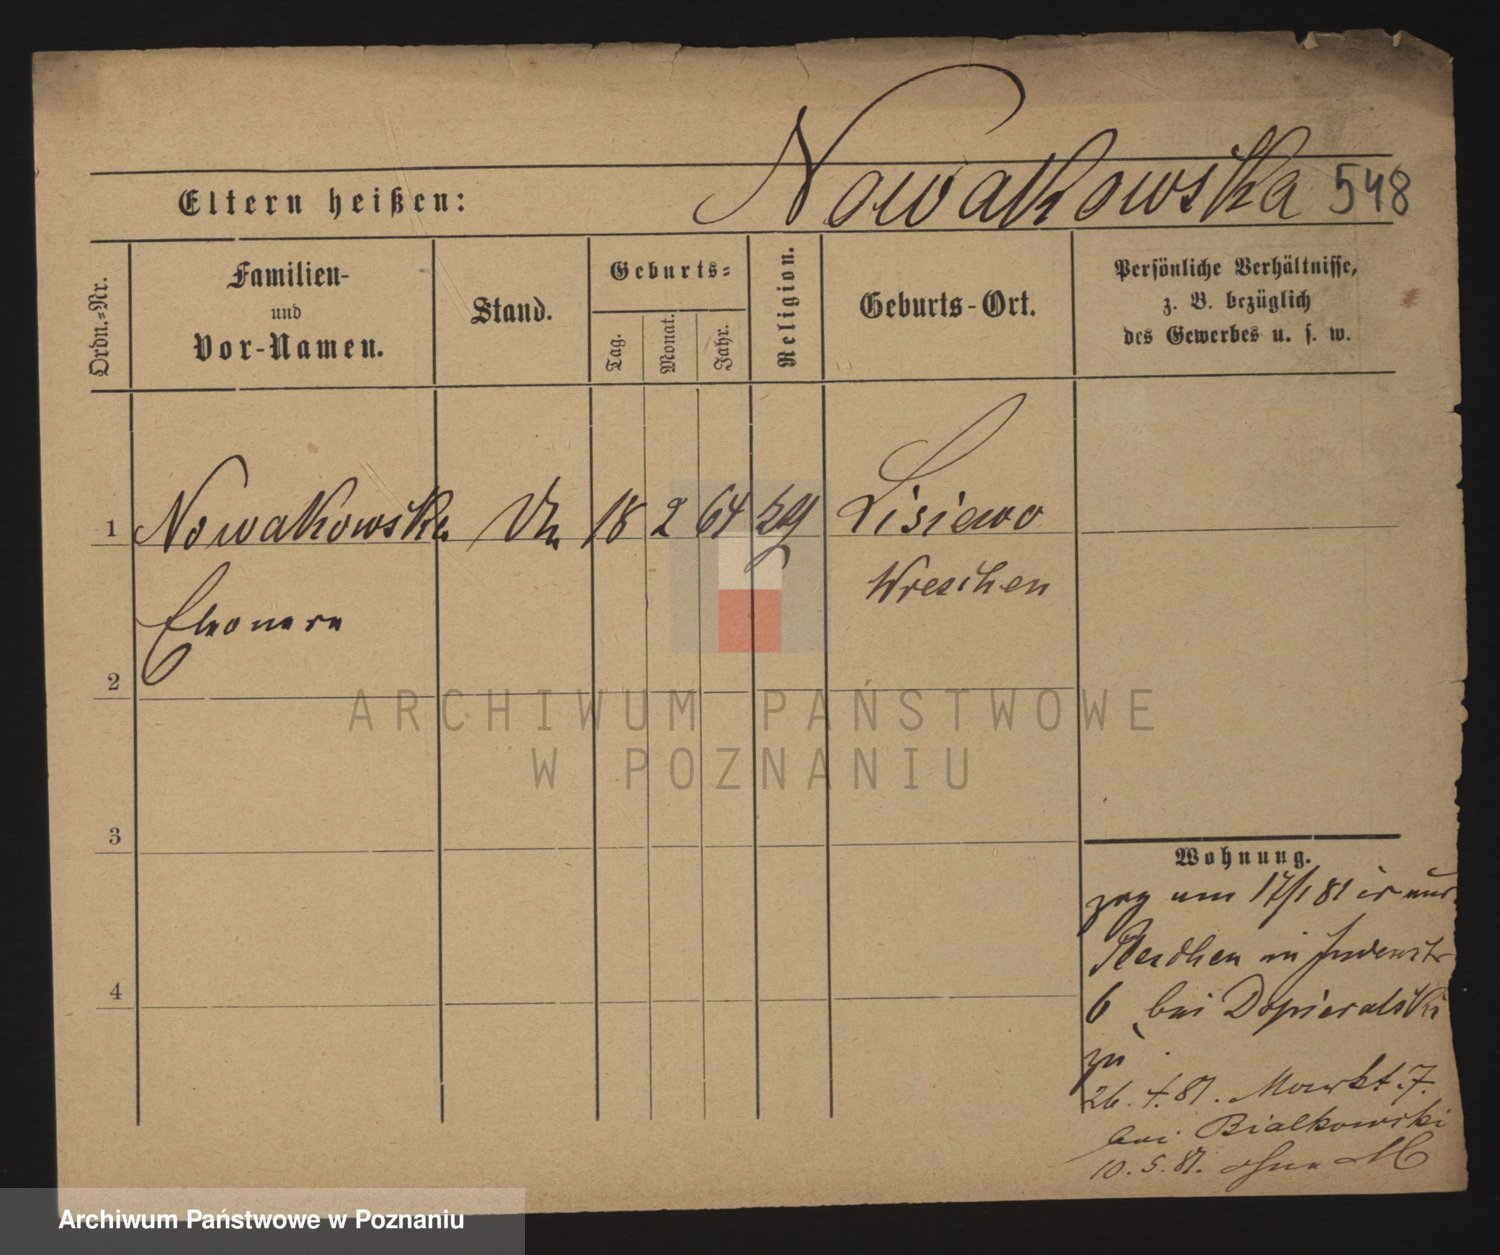 Nowakowska 548
Eltern heißen:
Ordn.=Nr.
Familien-
und
Vor-Namen.
Stand.
Geburts=
Tag.
Monat.
Jahr.
Religion.
Geburts-Ort.
Persönliche Verhältnisse,
z. B. bezüglich
des Gewerbes u. s. w.
1 Nowakowska 18 2 64 Lisiewo
Wreschen
Eleonora
2
ARCHIWUM PAŃSTWOWE
W POZNANIU
3
Wohnung.
zog am 17/1 81
in Judenstr
4
6 bei Dopieralski
zu
26. 4. 81. Markt 7.
bei Bialkowski
10. 5. 81. ohne M
Archiwum Państwowe w Poznaniu